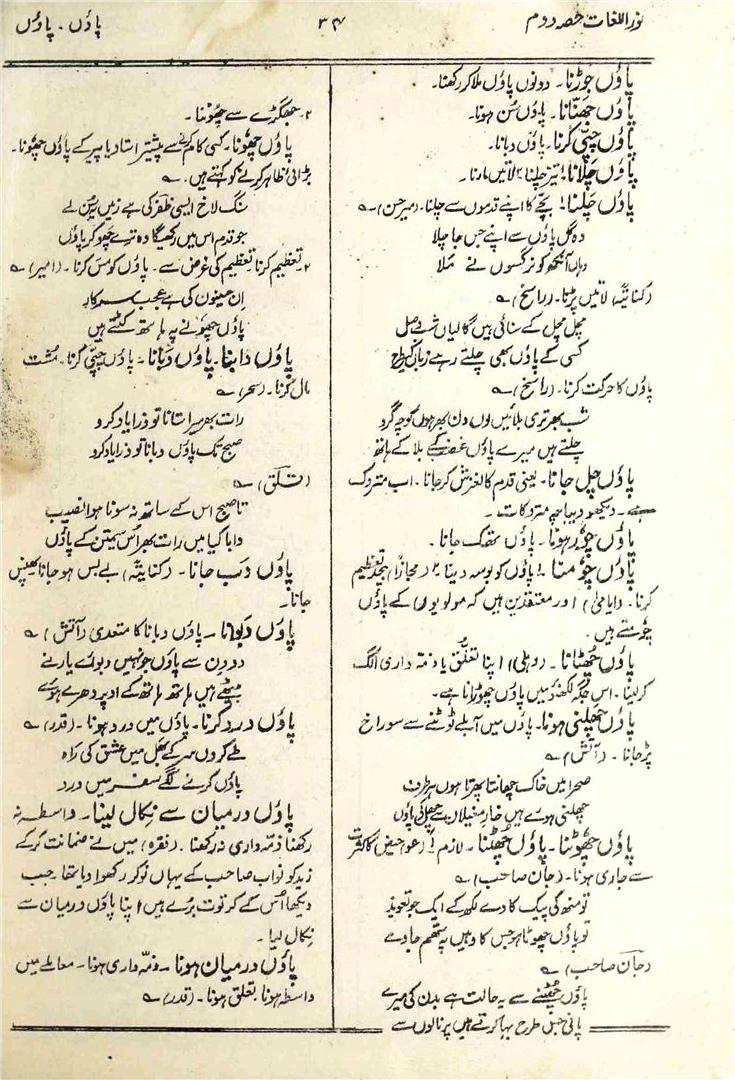 نور اللغات حصہ دوم
۳۴
پاؤں۔ پاؤں
پاؤں جوڑنا۔ دونوں پاؤں ملا کر رکھنا۔
پاؤں جھنانا۔ پاؤں سُن ہونا۔
پاؤں چپّی کرنا۔ پاؤں دبانا۔
پاؤں چَلانا! تیز چلنا ۲ لاتیں مارنا۔
پاؤں چَلنا! بچّے کا اپنے قدموں سے چلنا۔ (میر حسن) ؎
وہ گل پاؤں سے اپنے جس جا چلا
وہاں آنکھ کو نرگسوں نے مَلا
(کنایتہً) لاتیں پڑنا۔ (راسخ) ؎
مچل مچل کے سنائی ہیں گالیاں شب وصل
کسی کے پاؤں بھی چلتے رہے زباں کی طرح
پاؤں کا حرکت کرنا۔ (راسخ) ؎
شب بھر تری بلائیں لوں دن بھر ہوں کوچہ گرد
چلتے ہیں میرے پاؤں غضب کے بلا کے ہاتھ
پاؤں چل جانا۔ یعنی قدم کا لغزش کر جانا۔ اب متروک
ہے۔ دیکھو دیباچہ متروکات۔
پاؤں چوٗر ہونا۔ پاؤں تھک جانا۔
پاؤں چوٗمنا۔ ! پاؤں کو بوسہ دینا ۲ (مجازاً) بیحد تعظیم
کرنا۔ (ایامیٰ) اور معتقدین ہیں کہ مولویوں کے پاؤں
چومتے ہیں۔
پاؤں چُھٹانا۔ (دہلی) اپنا تعلّق یا ذمّہ داری الگ
کر لینا۔ اس جگہ لکھنؤ میں پاؤں چھوڑانا ہے۔
پاؤں چھلنی ہونا۔ پاؤں میں آبلے ٹوٹنے سے سوراخ
پڑ جانا۔ (آتش) ؎
صحرا میں خاک چھانتا پھرتا ہوں ہر طرف
چھلنی ہوئے ہیں خار مغیلاں سے چھل کے پاؤں
پاؤں چُھوٹنا۔ پاؤں چُھٹنا۔ لازم ! (عو) حیض کا کثرت
سے جاری ہونا۔ (جان صاحب) ؎
تو منھ کی پیک کا دے لکھ کے ایک جو تعویذ
تو پاؤں چھوٹا ہو جس کا وہیں پہ تھم جاوے
(جان صاحب) ؎
پاؤں چھٹنے سے یہ حالت ہے بدن کی میرے
پانی جس طرح بہا کرتے ہیں پرنالوں سے
۲۔ جھگڑے سے چھوٗٹنا۔
پاؤں چُھونا۔ کسی کام کرنے سے پیشتر استاد یا پیر کے پاؤں چھونا۔
بڑائی ظاہر کرنے کو کہتے ہیں۔ ؎
سنگ لاخ ایسی ظفر کی ہے زمیں یہ سُن لے
جو قدم اس میں رکھیگا وہ ترے چھو کر پاؤں
۲۔ تعظیم کرنا تعظیم کی غرض سے۔ پاؤں کو مس کرنا۔ (امیر) ؎
اِن حسینوں کی ہے عجب سرکار
پاؤں چھوٗنے پہ ہاتھ کٹتے ہیں
پاؤں دابنا۔ پاؤں دَبانا۔ پاؤں چپّی کرنا۔ مُشت
مال کرنا۔ (سحر) ؎
رات بھر میرا ستانا تو ذرا یاد کرو
صبح تک پاؤں دبانا تو ذرا یاد کرو
(قلق) ؎
تا صبح اس کے ساتھ نہ سونا ہوا نصیب
دابا کیا میں رات بھر اُس سیمتن کے پاؤں
پاؤں دَب جانا۔ (کنایتہً) بے بس ہو جانا پھنس
جانا۔
پاؤں دَبوانا۔ پاؤں دبانا کا متعدی (آتش) ؎
دو دن سے پاؤں جو نہیں دبوائے یار نے
بیٹھے ہیں ہاتھ ہاتھ کے اوپر دھرے ہوئے
پاؤں درد کرنا۔ پاؤں میں درد ہونا۔ (قدر) ؎
طے کروں سر کے بھل میں عشق کی راہ
پاؤں کرنے لگے سفر میں درد
پاؤں درمیان سے نکال لینا۔ واسطہ نہ
رکھنا ذمّہ داری نہ رکھنا۔ (فقرہ) میں نے ضمانت کر کے
زید کو نواب صاحب کے یہاں نوکر رکھوا دیا تھا۔ جب
دیکھا اُس کے کرتوت بُرے ہیں اپنا پاؤں درمیان سے
نکال لیا۔
پاؤں درمیان ہونا۔ ذمّہ داری ہونا۔ معاملے میں
واسطہ ہونا۔ تعلق ہونا۔ (قدر) ؎